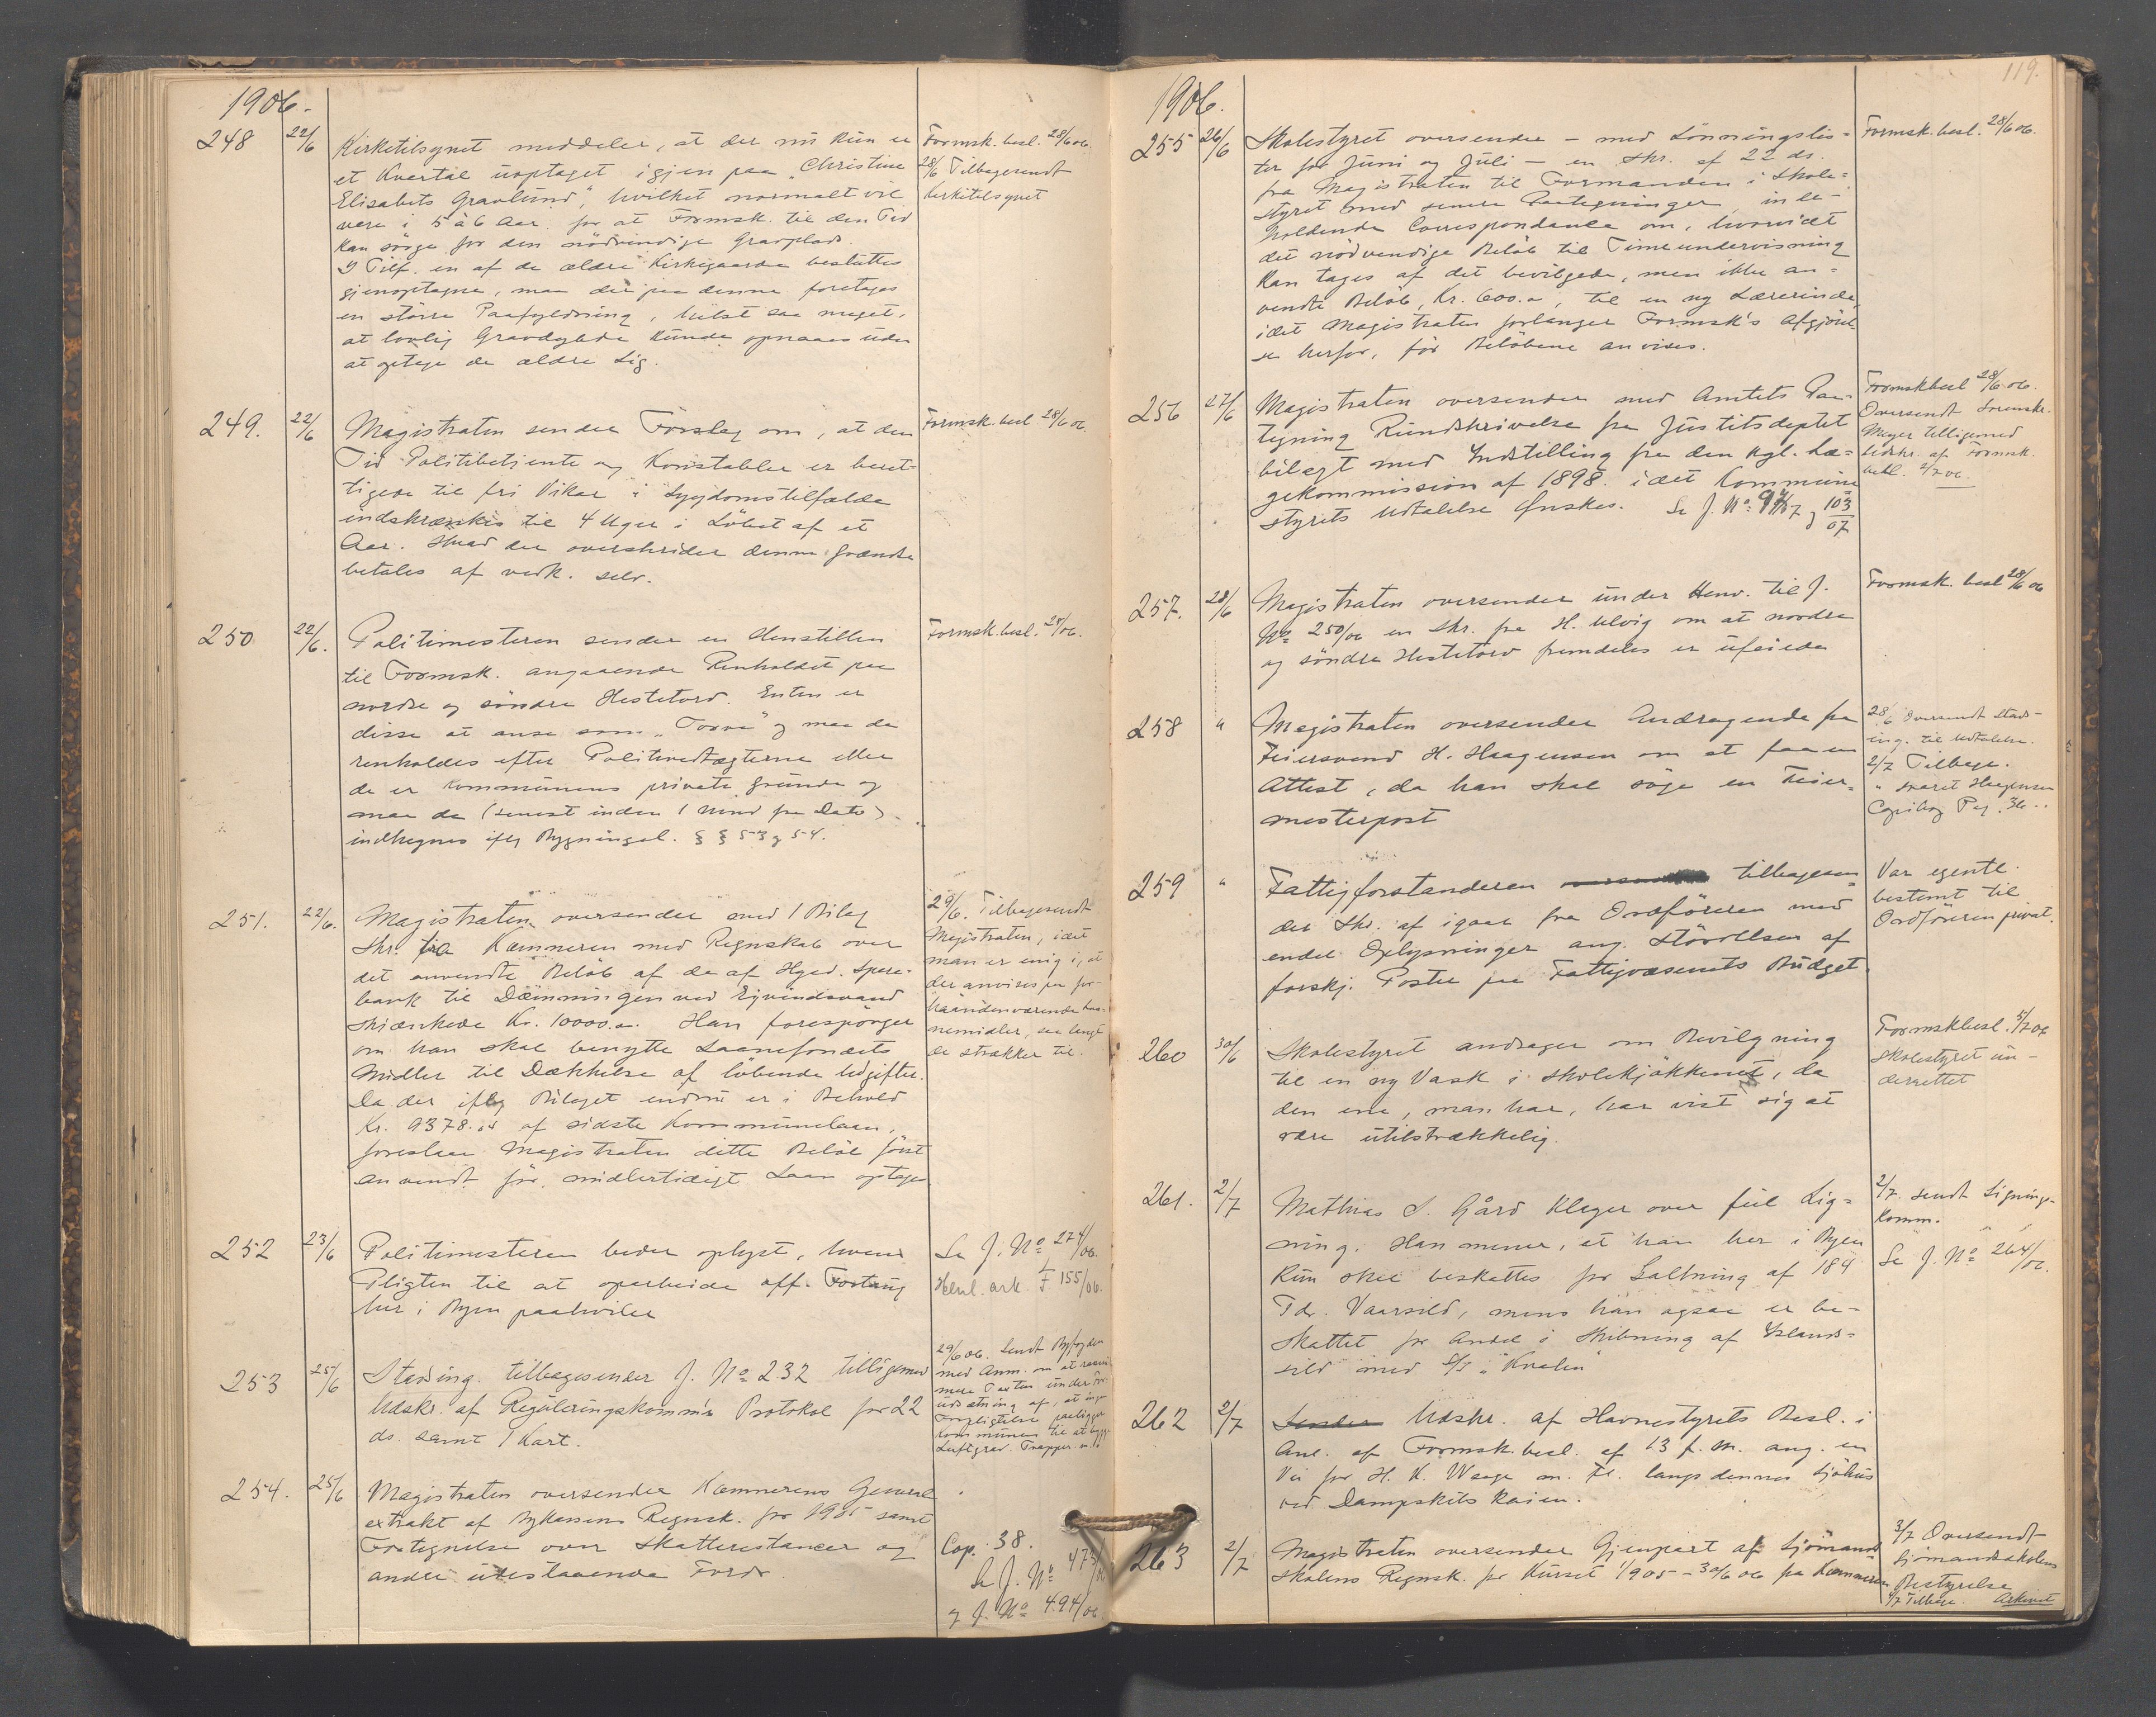 1906.
248 22/6 Kirketilsynet meddeler, at der nu kun er
et Kvartal uoptaget igjen paa "Christine
Elisabets Gravlund", hvilket normalt vil
vare i 5 à 6 Aar for at Formsk. til den Tid
kan sørge for den nødvendige Gravplads.
I Tilf. en af de ældre Kirkegaarde besluttes
gjenoptagne, maa der paa denne foretages
en større Paafyldning, helst saa meget,
at lovlig Gravdybde kunde opnaaes uden
at optage de ældre Lig.
Formsk. besl. 28/6 06.
28/6 Tilbagesendt
Kirketilsynet
249. 22/6 Magistraten sender Forslag om, at den
Tid Politibetjente og Konstabler er beret-
tigede til fri Vikar i Sygdomstilfælde
indskrænkes til 4 Uger i Løbet af et
Aar. Hvad der overskrider denne Grændse
betales af vedk. selv.
Formsk. besl. 28/6 06.
250 22/6. Politimesteren sender en Henstillen
til Formsk. angaaende Renholdet paa
nordre og søndre Hestetorv. Enten er
disse at anse som "Torve" og maa da
renholdes efter Politivedtægterne eller
de er Kommunens private Grunde og
maa da (senest inden 1 Mnd fra Dato)
indhegnes iflg Bygningsl. § § 53 og 54.
Formsk. besl. 28/6 06.
251. 22/6. Magistraten oversender med 1 Bilag
Skr. fra Kæmneren med Regnskab over
det anvendte Beløb af de af Hgsd. Spare-
bank til Dæmningen ved Eivindsvand
skjænkede Kr. 10000.00. Han forespørger
om han skal benytte Laanefondets
Midler til Dækkelse af løbende Udgifter.
Da der iflg Bilaget endnu er i Behold
Kr. 9378. af sidste Kommunelaan,
foreslaar Magistraten dette Beløb først
anvendt før midlertidigt Laan optages
29/6. Tilbagesendt
Magistraten, idet
man er enig i, at
der anvises paa for-
haandenværende Kas-
semidler, saa langt
de strækker til.
252 23/6 Politimesteren beder oplyst, hvem
Pligten til at oparbeide off. Fortaug
her i Byen paahviler
Se J. No 274/06.
Henl. ark. F 155/06.
253 25/6 Stadsing. tilbagesender J. No 232 tilligemed
Udskr. af Reguleringskomm's Protokol for 22
ds. samt 1 Kart.
29/6 06. Sendt Byfogden
med Anm. om at
Taxten under For-
udsætning af, at ingen
Forpligtelse paaligger
Kommunen til at bygge
Luftgrav. Trapper. m. v.
254. 25/6 Magistraten oversender Kæmnerens General
extrakt af Bykassens Regnsk. for 1905 samt
Fortegnelse over Skatterestancer og
andre udestaaende Fordr.
Cop. 38.
Se J. No 473/06
og J. No 494/06.
119.
1906.
255 26/6 Skolestyret oversender – med Lønningslis-
ter for Juni og Juli – en Skr. af 22 ds.
fra Magistraten til Formanden i Skole-
styret med senere Paategninger, inde-
holdende Correspondance om, hvorvidt
det nødvendige Beløb til Timeundervisning
kan tages af det bevilgede, men ikke an-
vendte Beløb, Kr. 600.00, til en ny Lærerinde,
idet Magistraten forlanger Formsk's Afgjørel-
se herfor, før Beløbene anvises.
Formsk. besl. 28/6 06.
256 27/6 Magistraten oversender med Amtets Paa-
tegning Rundskrivelse fra Justitsdeptet
bilagt med Indstilling fra den kgl. Læ-
gekommission af 1898. idet Kommune
styrets Udtalelse ønskes. Se J. No. 103/07
Formskbesl 28/6 06.
Oversendt Sorenskr.
Meyer tilligemed
Udskr. af Formsk.
besl. 2/7 06.
257. 28/6 Magistraten oversender under Henv. til J.
No 250/06 en Skr. fra H. Ulvig om at nordre
og søndre Hestetorv fremdeles er ufeiede
Formsk. besl 28/6 06
258 " Magistraten oversender Andragende fra
Feiersvend H. Haagensen om at faa en
Attest, da han skal søge en Feier-
mesterpost
28/6 Oversendt Stads-
ing. til Udtalelse.
2/7 Tilbage.
" svaret Haagensen
Copibog Pag. 36
259 " Fattigforstanderen tilbagesen-
der Skr. af igaar fra Ordføreren med
endel Oplysninger ang. Størrelsen af
forskj. Poster paa Fattigvæsenets Budget.
Var egentl.
bestemt til
Ordføreren privat.
260 30/6 Skolestyret andrager om Bevilgning
til en ny Vask i skolekjøkkenet, da
den ene, man har, har vist sig at
være utilstrækkelig.
Formskbesl. 5/7 06
Skolestyret un-
derrettet
261. 2/7 Mathias S. Gård klager over feil Lig-
ning. Han mener, at han her i Byen
kun skal beskattes for Saltning af 189
Tdr. Vaarsild, mens han ogsaa er be-
skattet for Andel i Skibning af Islands-
sild med S/S "Kvalen"
2/7. sendt Lignings-
komm.
Se J. No 264/06.
262 2/7 Sender Udskr. af Havnestyrets Besl. i
Anl. af Formsk. besl. af 13 f. M. ang. en
Vei for H. K. Waage m. Fl. langs dennes Sjøhus
ved Dampskibskaien.
263 2/7 Magistraten oversender Gjenpart af Sjømands
skolens Regnsk. for Kurset 1905 – 30/6 06 fra Kæmneren
3/7 Oversendt
Sjømandsskolens
Bestyrelse
Tilbage. Arkivet